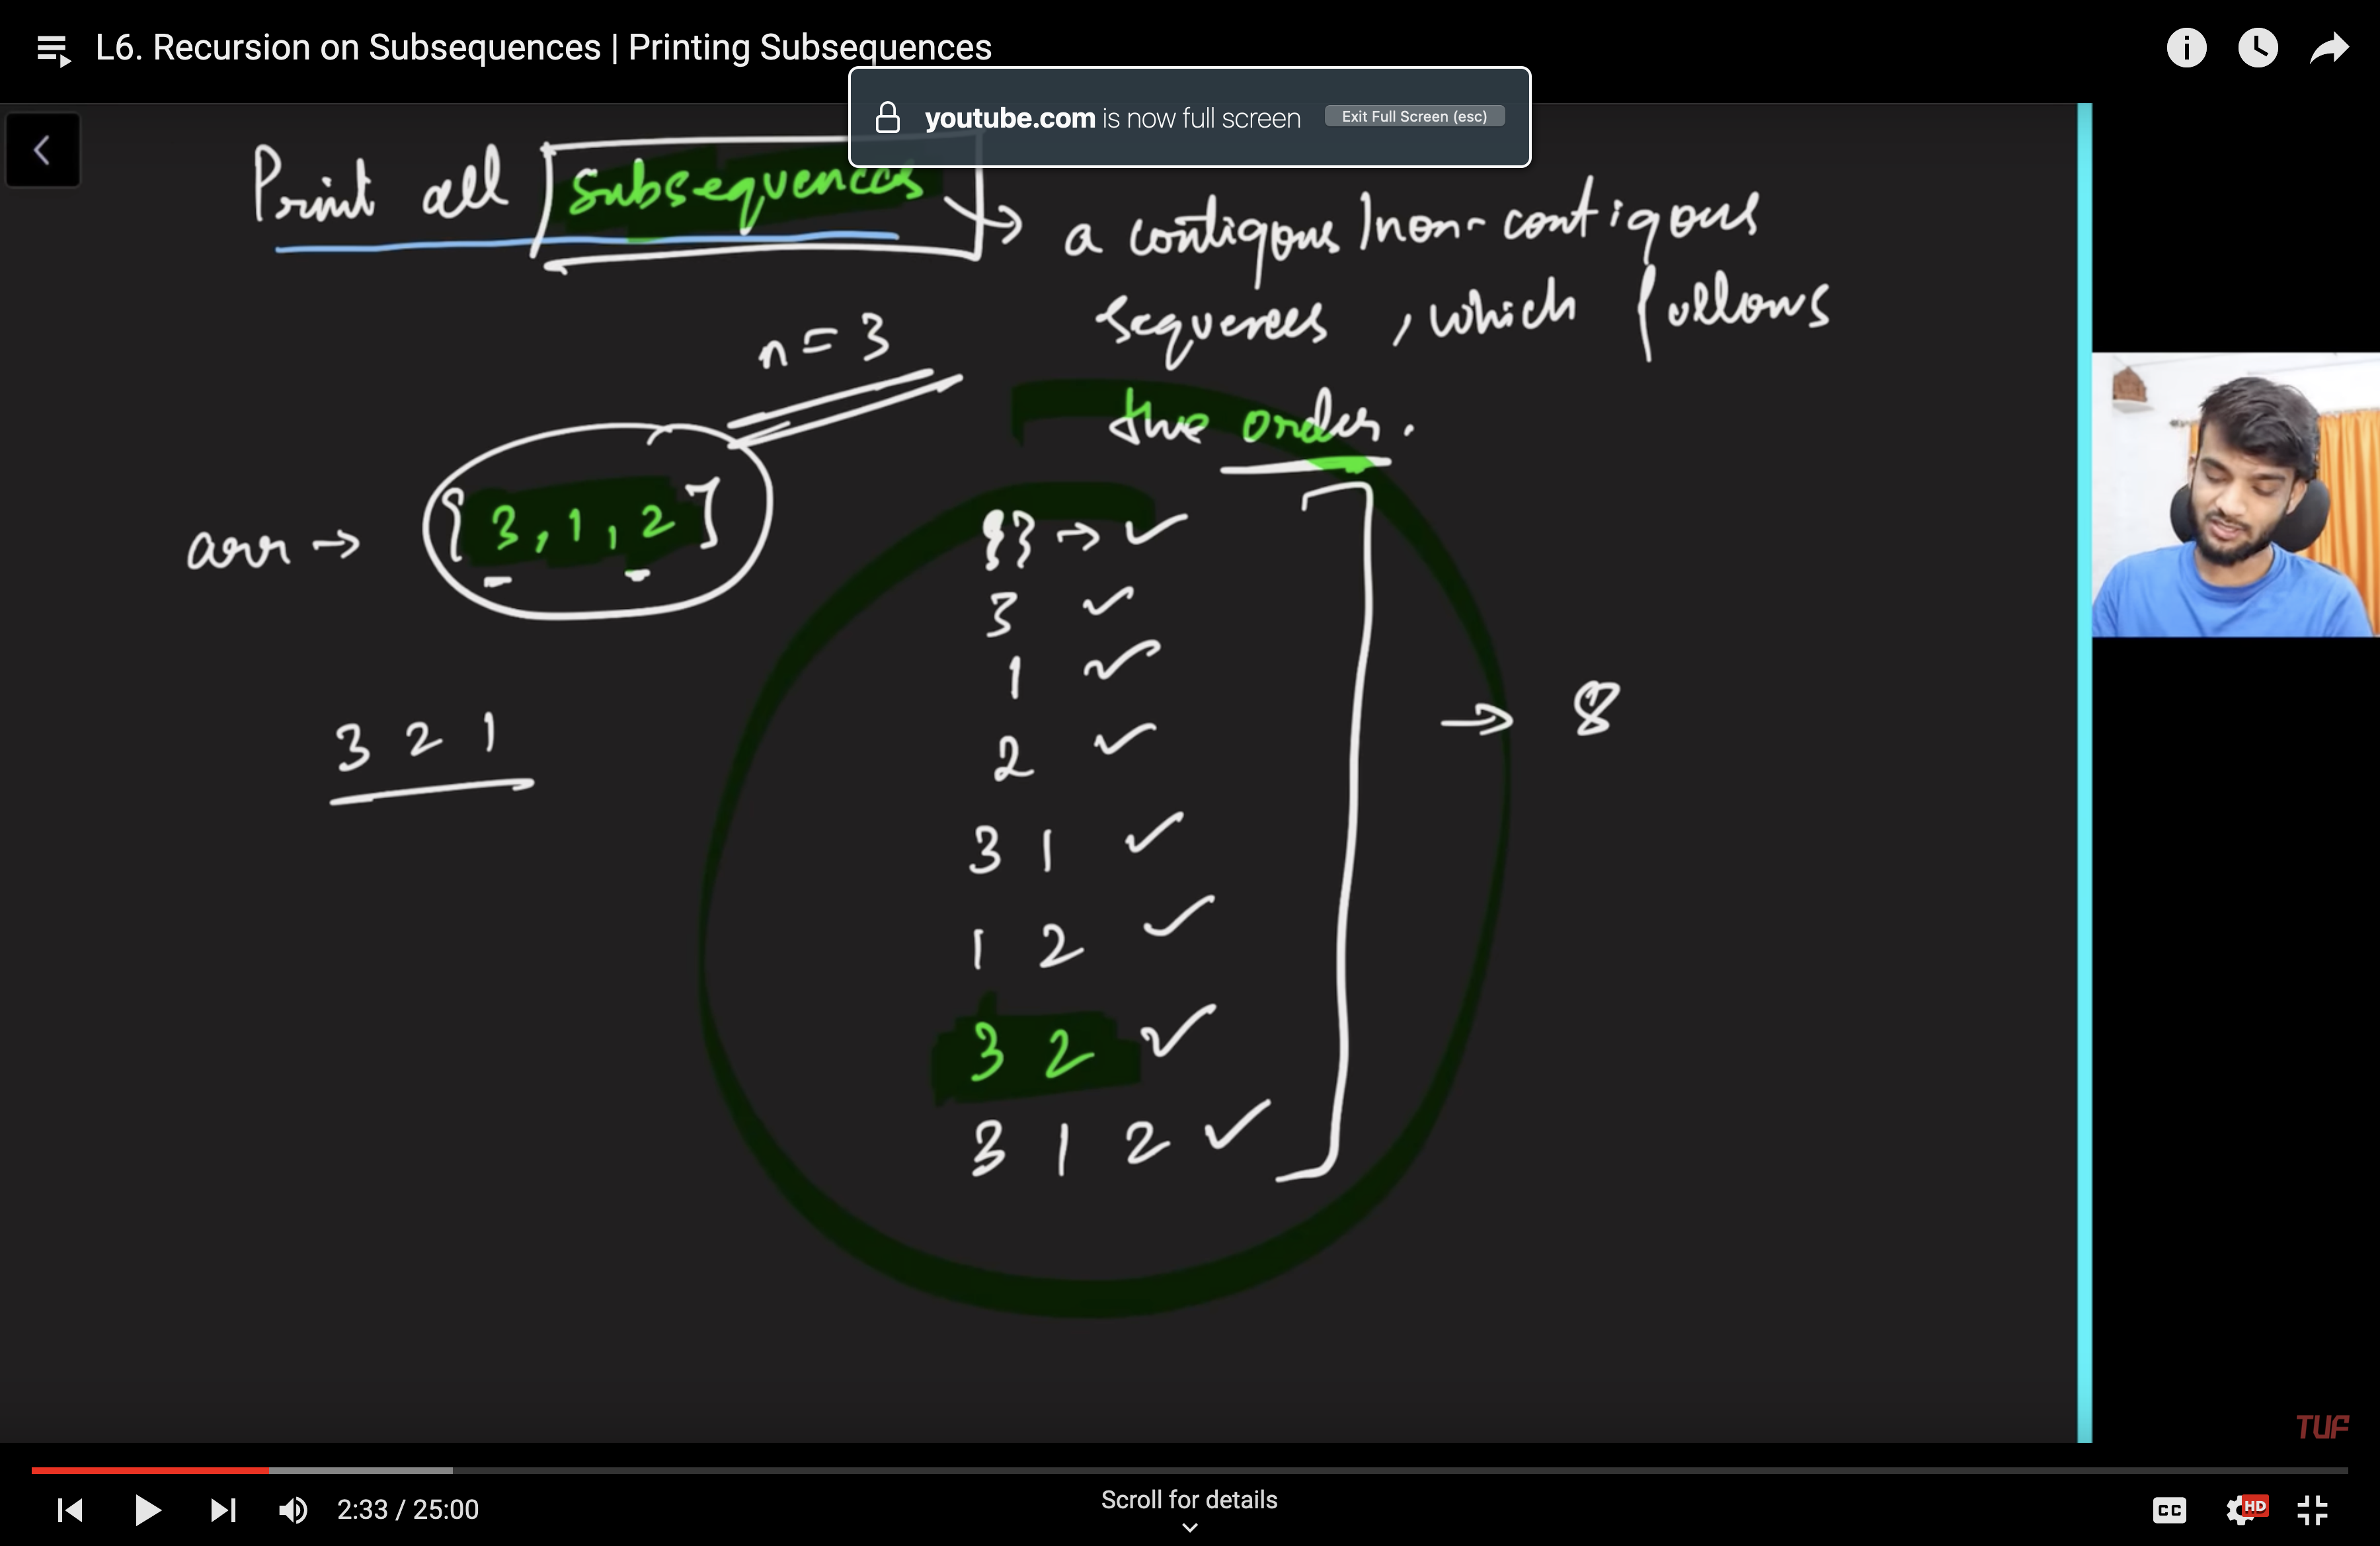 L6. Recursion on Subsequences | Printing Subsequences
youtube.com is now full screen Exit Full Screen (esc)
Print all subsequences → a contigous / non-contigous
sequences , which follows
the order.
n = 3
arr → [3, 1, 2]
{} → ✓
3 ✓
1 ✓
2 ✓
3 1 ✓
1 2 ✓
3 2 ✓
3 1 2 ✓
→ 8
3 2 1
TUF
2:33 / 25:00
Scroll for details
CC
HD